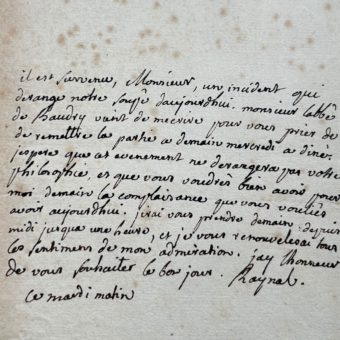 il est survenu, Monsieur, un incident qui
derange notre soupé daujourdhui. monsieur labbé
de Baudry vient de mecrire pour vous prier de
de remettre la partie a demain mercredi a diné.
jespere que cet evenement ne derangera pas votre
philosophie, et que vous voudrés bien avoir pour
moi demain la complaisance que vous vouliés
avoir aujourdhui. jirai vous prendre demain depuis
midi jusqua une heure, et je vous renouvelerai tous
les sentimens de mon admiration. jay lhonneur
de vous souhaiter le bon jour. Raynal.
ce mardi matin